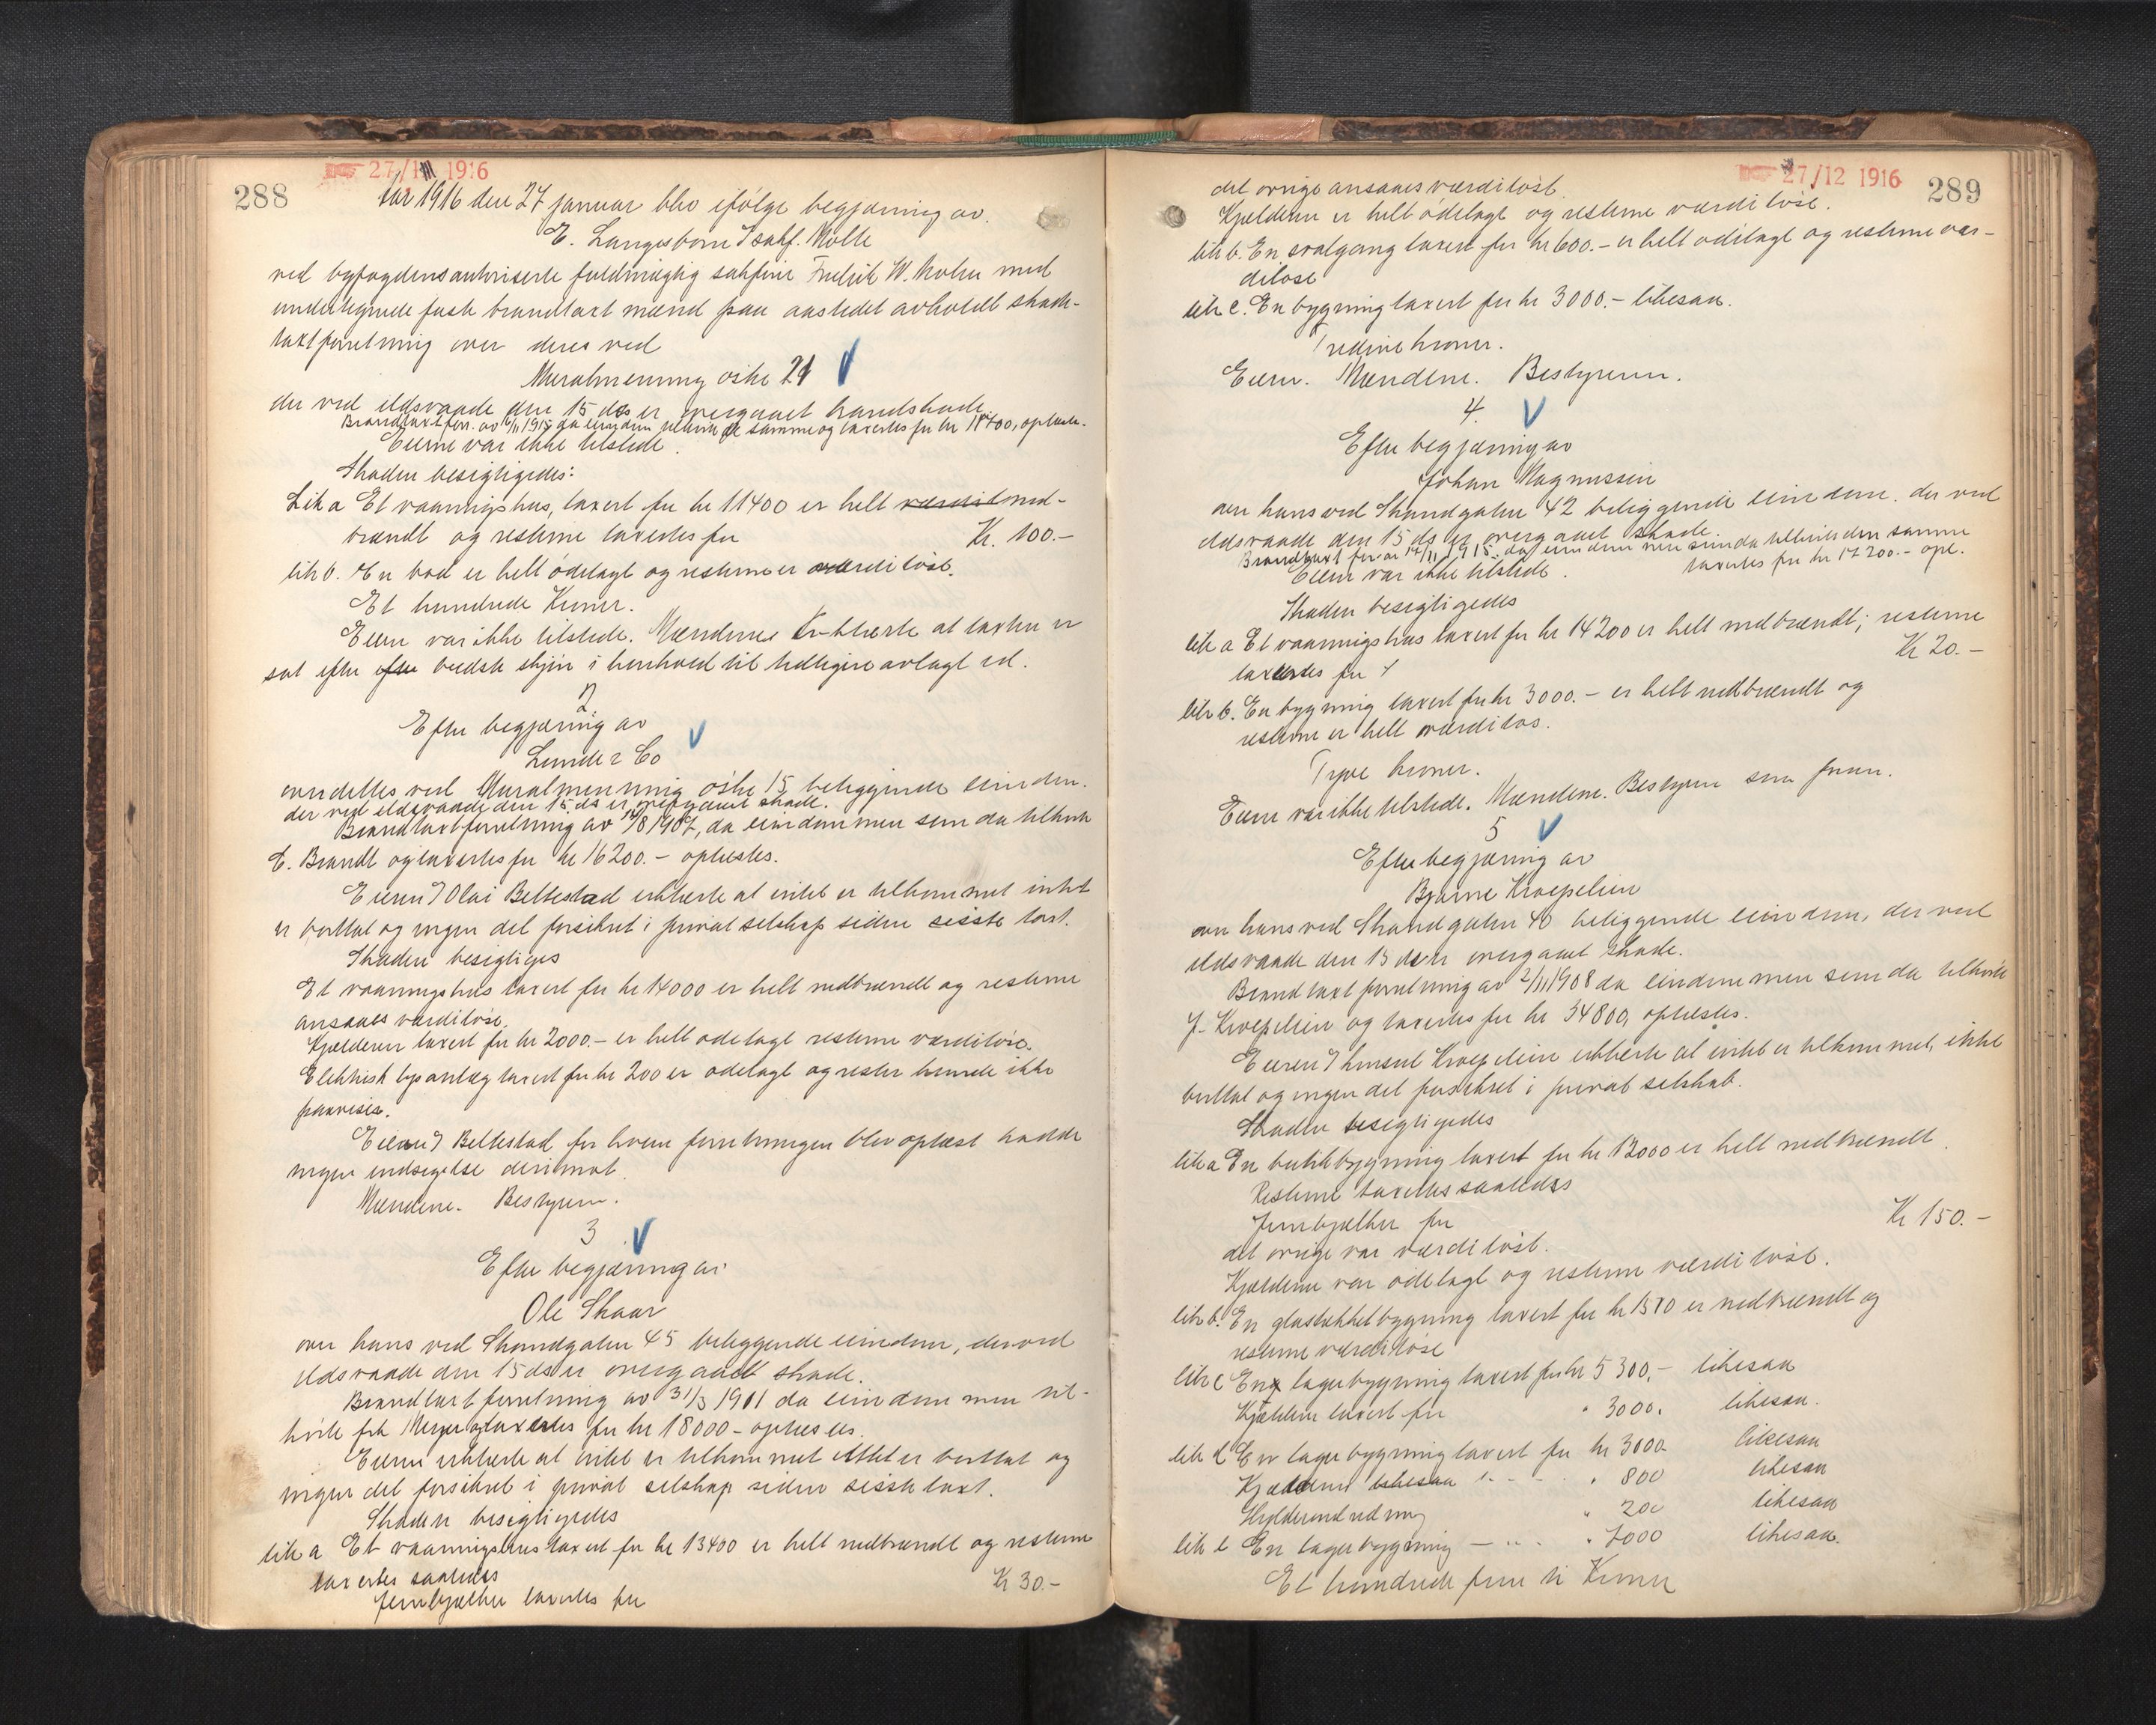 288
27/1 1916
Aar 1916 den 27 januar blev ifölge begjæring av
E. Langesborn v/sakf. Molle
ved byfogdens autoriserte fuldmægtig sakfører Fredrik W. Holm med
undertegnede faste brandtaxtmænd paa aastedet avholdt skade-
taxtforretning over deres ved
Muralmenning östre 21
der ved ildsvaade den 15 ds er overgaaet brandskade.
Brandtaxtforr. av 16/11 1915 da eiendom tilhørte de samme og taxertes for kr 11700, oplæstes.
Eierne var ikke tilstede.
Skaden besigtigedes:
Litr a Et vaaningshus, taxert for kr 11400 er helt ned-
brændt og resterne taxertes for Kr. 100.-
litr b. En bod er helt ödelagt og resterne er værdilöse.
Et hundrede Kroner.
Eieren var ikke tilstede. Mændene erklærte at taxten er
sat efter bedste skjön i henhold til tidligere avlagt ed.
2
Efter begjæring av
Lund & Co
over dettes ved Muralmenning östre 15 beliggende eiendom.
der ved ildsvaade den 15 ds er overgaaet skade.
Brandtaxtforretning av 14/8 1907, da eiendommen som da tilhörte
E. Brandt og taxertes for kr 16200.- oplæstes.
Eieren v/ Olai Beltestad erklærte at intet er tilkommet intet
er borttat og ingen del forsikret i privat selskap siden sisste taxt.
Skaden besigtiges
Et vaaningshus taxert for kr 14000 er helt nedbrændt og resterne
ansaaes værdilöse.
Kjælderen taxert for kr 2000.- er helt ödelagt resterne værdilöse.
Elektrisk lysanlæg taxert for kr 200 er ödelagt og rester kunde ikke
paavises.
Eieren v/ Beltestad for hvem forretningen blev oplæst hadde
ingen indsigelse derimot.
Mændene. Bestyreren.
3
Efter begjæring av
Ole Skaar
over hans ved Strandgaten 45 beliggende eiendom, der ved
ildsvaade den 15 ds er overgaaet skade.
Brandtaxtforretning av 31/3 1911 da eiendommen til-
hörte frk Meyer og taxertes for kr 18000- oplæstes.
Eieren erklærte at intet er tilkommet intet er borttat og
ingen del forsikret i privat selskap siden sisste taxt.
Skaden besigtigedes
litr a Et vaaningshus taxert for kr 13400 er helt nedbrændt og resterne
taxertes saaledes
Jernbjælker taxertes for Kr 30.-
27/12 1916
289
det övrige ansaaes værdilöst.
Kjælderen er helt ödelagt og resterne værdilöse.
litr b. En svalgang taxert for kr 600.- er helt ödelagt og resterne vær-
dilöse
litr c. En bygning taxert for kr 3000.- likesaa.
Tredive kroner.
Eieren. Mændene. Bestyreren.
4.
Efter begjæring av
Johan Magnussen
over hans ved Strandgaten 42 beliggende eiendom. der ved
ildsvaade den 15 ds er overgaaet skade.
Brandtaxtforr. av 17/11 1915. da eiendommen som da tilhörte den samme
taxertes for kr 17200.- opl.
Eieren var ikke tilstede.
Skaden besigtigedes
litr a Et vaaningshus taxert for kr 14200 er helt nedbrændt; resterne
taxertes for Kr 20.-
litr b. En bygning taxert for kr 3000.- er helt nedbrændt og
resterne er helt værdilös.
Tyve kroner.
Eieren var ikke tilstede. Mændene. Bestyreren som foran.
5
Efter begjæring av
Bjarne Kroepelien
over hans ved Strandgaten 40 beliggende eiendom, der ved
ildsvaade den 15 ds er overgaaet skade.
Brandtaxtforretning av 2/11 1908 da eiendommen som da tilhörte
J. Kroepelien og taxertes for kr 34800, oplæstes.
Eieren v/ konsul Kroepelien erklærte at intet er tilkommet, ikke
borttat og ingen del forsikret i privat selskab.
Skaden besigtigedes
litr a En butikbygning taxert for kr 12000 er helt nedbrændt.
Resterne taxertes saaledes
Jernbjælker for Kr 150.-
det övrige var værdilöst.
Kjælderen var ödelagt og resterne værdilöst.
litr b. En glastakket bygning taxert for kr 1500 er nedbrændt og
resterne værdilöse
litr c En lagerbygning taxert for kr 5300,- likesaa
Kjælderen taxert for " 3000. likesaa.
litr d En lagerbygning taxert for kr 3000 likesaa
Kjælderen likesaa " 800 likesaa
Hylderindredning " 200 likesaa
litr e En lagerbygning - " - " 7000 likesaa.
Et hundrede femti Kroner